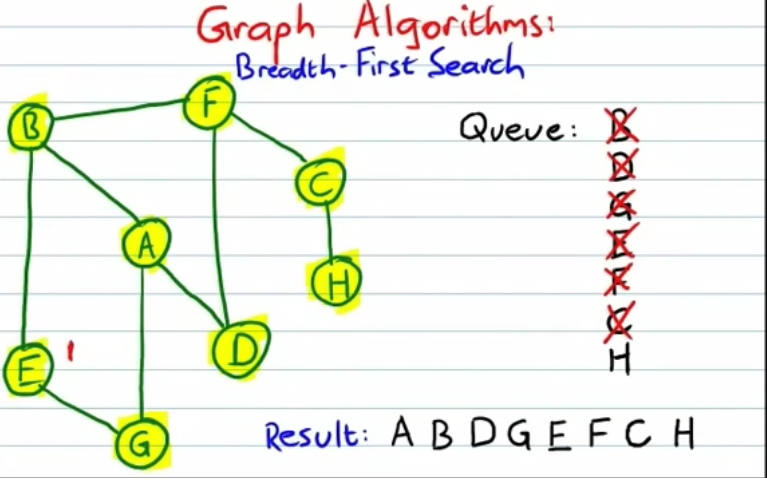 Graph Algorithms:
Breadth-First Search
B
F
C
A
H
E
D
G
Queue:
B
D
G
E
F
C
H
Result: A B D G E F C H